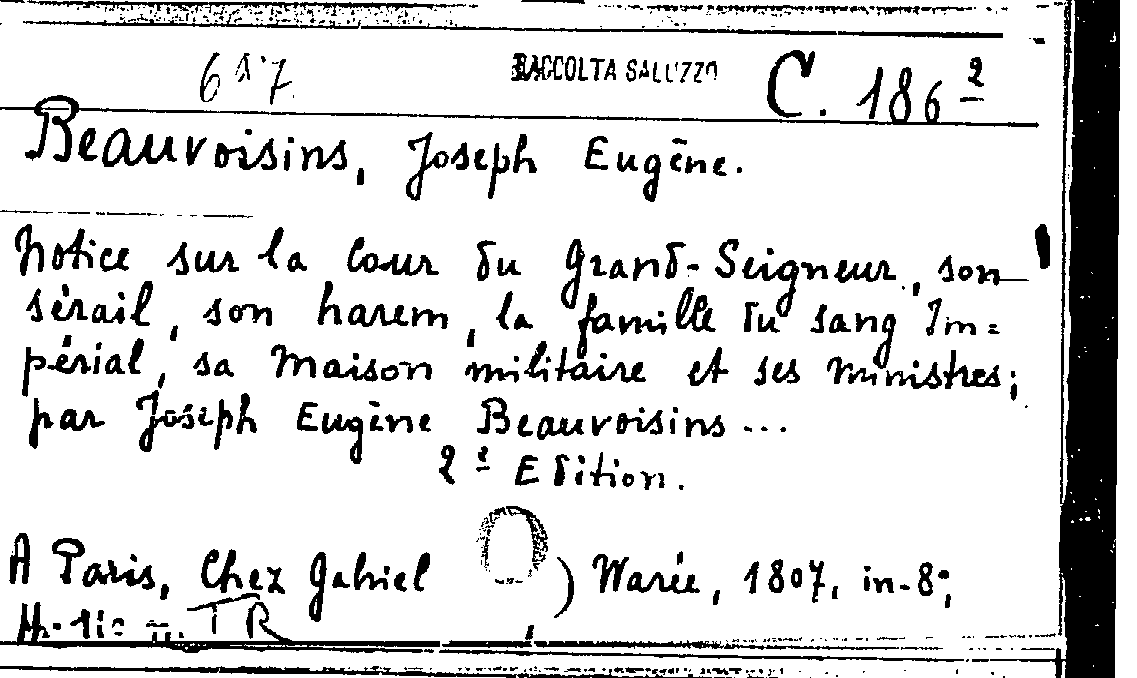 RACCOLTA SALUZZO C. 186 2
Beauvoisins, Joseph Eugène.
Notice sur la Cour du Grand-Seigneur, son
sérail, son harem, la famille du sang Im=
périal, sa Maison militaire et ses Ministres;
par Joseph Eugène Beauvoisins...
2e Edition.
A Paris, Chez Gabriel ) Warée, 1807, in-8°;
TR